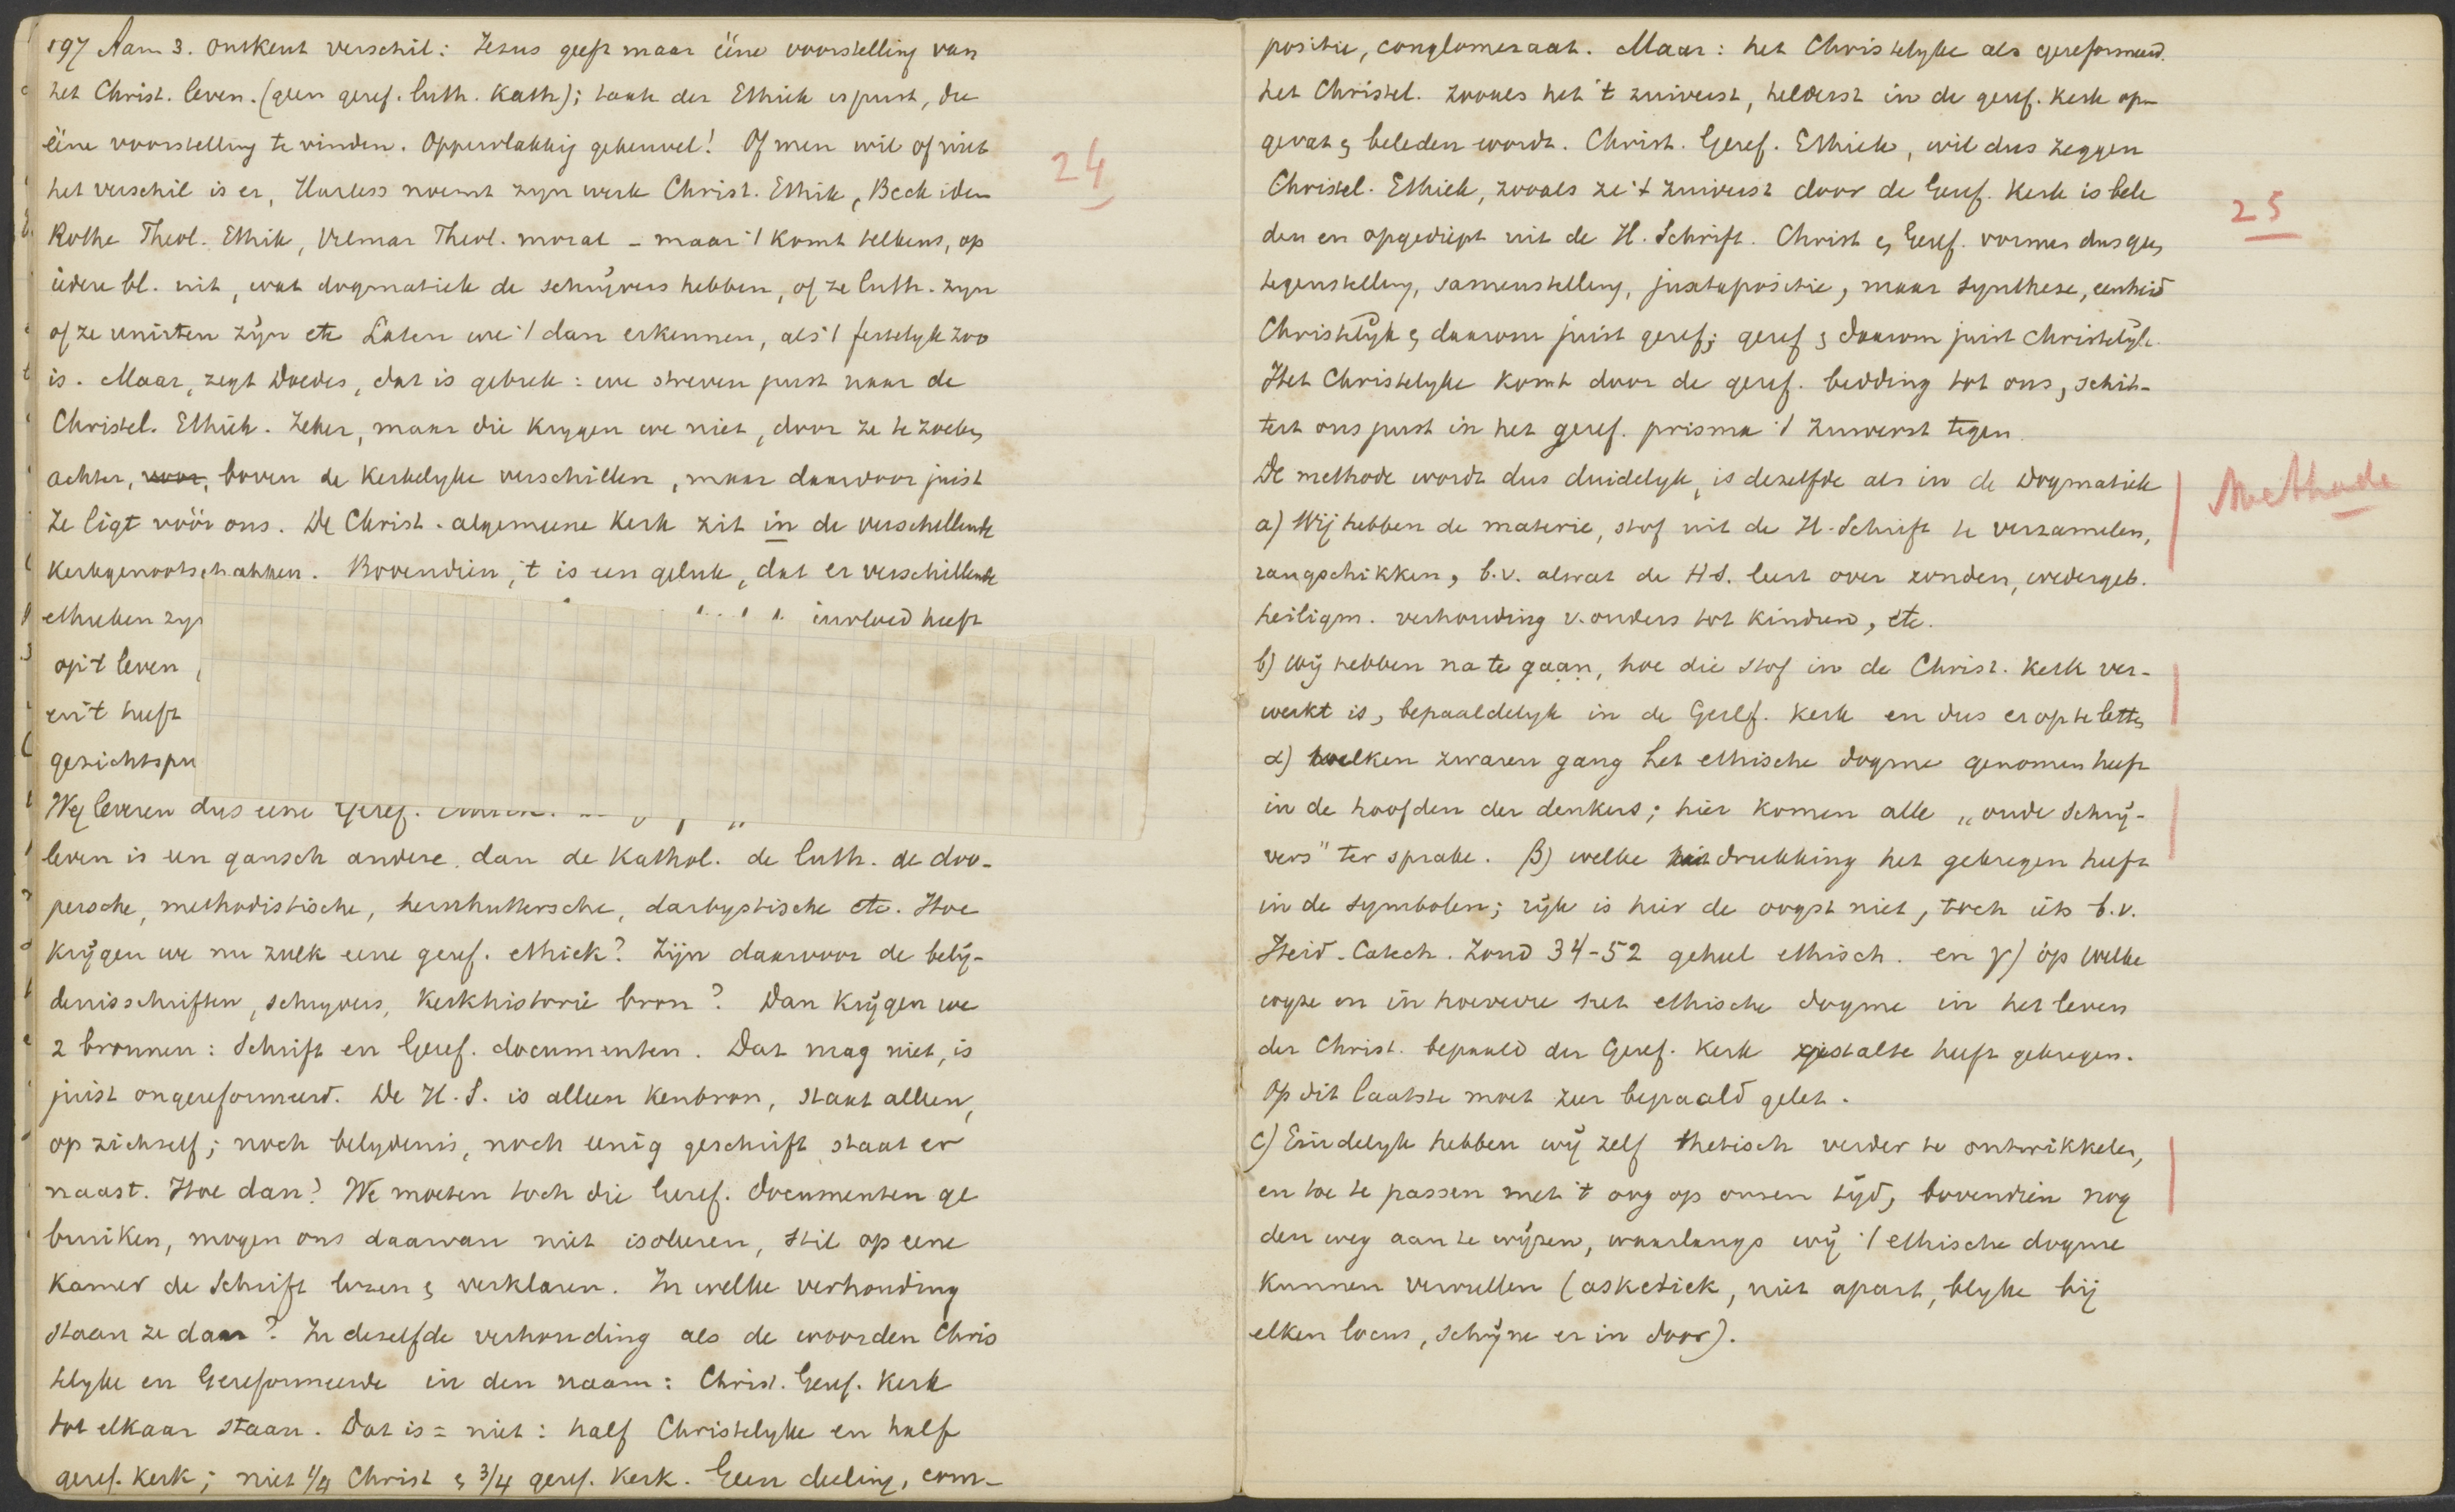 197 Aanm 3. ontkent verschil: Jezus geeft maar ééne voorstelling van
het Christ. leven. (geen geref. luth. Kath); taak der Ethiek is juist, die
ééne voorstelling te vinden. Oppervlakkig geheuvel! Of men wil of niet
het verschil is er, Harless noemt zyn werk Christ. Ethik, Beck idem
Rothe Theol. Ethik, Vilmar Theol. moral – maar 't komt telkens, op
iedere bl. uit, wat dogmatiek de schrijvers hebben, of ze luth. zyn
of ze unirten zijn etc Laten we 't dan erkennen, als 't feitelyk zoo
is. Maar, zegt Doedes, dat is gebrek: we streven juist naar de
Christel. Ethiek. Zeker, maar die krygen we niet, door ze te zoeken
achter, voor, boven de Kerkelyke verschillen, maar daardoor juist
Ze ligt vóór ons. De Christ. algemeene Kerk zit in de verschillende
Kerkgenootschappen. Bovendien, 't is een geluk, dat er verschillende
ethieken zyn
invloed heeft
op 't leven
en 't heeft
gezichtspu
Wy leveren dus eene Geref.
leven is een gansch andere dan de Kathol. de luth. de doo-
persche, methodistische, hernhuttersche, darbystische etc. Hoe
krijgen we nu zulk eene geref. ethiek? Zijn daarvoor de belij-
denisschriften, schryvers, Kerkhistorie bron? Dan krijgen we
2 bronnen: Schrift en Geref. documenten. Dat mag niet, is
juist ongereformeerd. De H.S. is alleen Kenbron, staat alleen,
op zichzelf; noch belydenis, noch eenig geschrift staat er
naast. Hoe dan? We moeten toch die Geref. documenten ge
bruiken, mogen ons daarvan niet isoleeren, stil op eene
kamer de Schrift lezen & verklaren. In welke verhouding
staan ze dan? In dezelfde verhouding als de woorden Chris
telyke en Gereformeerde in den naam: Christ. Geref. Kerk
tot elkaar staan. Dat is = niet: half Christelyke en half
geref. Kerk; niet 1/4 Christ & 3/4 geref. Kerk. Geen deeling, com-
24
positie, conglomeraat. Maar: het Christelyke als gereformeerd.
het Christel. zooals het 't zuiverst, helderst in de geref. Kerk op-
gevat & beleden wordt. Christ. Geref. Ethiek, wil dus zeggen
Christel. Ethiek, zooals ze 't zuiverst door de Geref. Kerk is bele
den en opgediept uit de H. Schrift. Christ & Geref. vormen dus geen
tegenstelling, samenstelling, juxtapositie, maar synthese, eenheid
Christelijk & daarom juist geref; geref & daarom juist Christelijk.
Het Christelyke komt door de geref. bedding tot ons, schit-
tert ons juist in het geref. prisma 't zuiverst tegen.
De methode wordt dus duidelyk, is dezelfde als in de Dogmatiek
a) Wij hebben de materie, stof uit de H. Schrift te verzamelen,
rangschikken, b.v. alwat de H.S. leert over zonden, wedergeb.
heiligm. verhouding v. ouders tot kinderen, etc.
b) wij hebben na te gaan, hoe die stof in de Christ. Kerk ver-
werkt is, bepaaldelyk in de Geref. Kerk en dus er op te letten
α) welken zwaren gang het ethische dogme genomen heeft
in de hoofden der denkers; hier komen alle „oude Schrij-
vers" ter sprake. β) welke uitdrukking het gekregen heeft
in de symbolen; rijk is hier de oogst niet, toch iets b.v.
Heid. Catech. Zond 34-52 geheel ethisch. en γ) op welke
wyze en in hoeverre het ethische dogme in het leven
der Christ. bepaald der Geref. Kerk gestalte heeft gekregen.
Op dit laatste moet zeer bepaald gelet.
c) Eindelyk hebben wij zelf thetisch verder te ontwikkelen,
en toe te passen met 't oog op onzen tijd, bovendien nog
den weg aan te wijzen, waarlangs wij 't ethische dogme
kunnen vervullen (asketiek, niet apart, blyke bij
elken locus, schijne er in door).
25
Methode